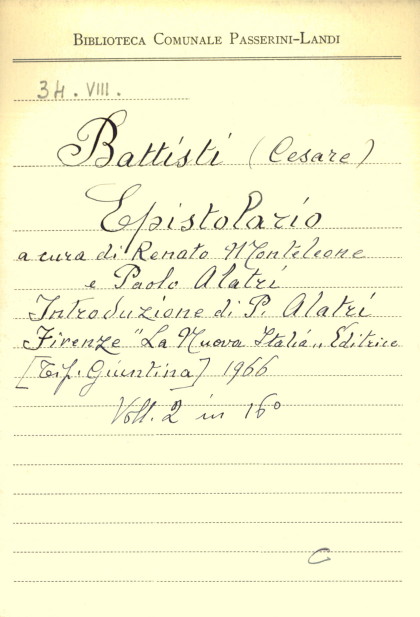 BIBLIOTECA COMUNALE PASSERINI-LANDI
34. VIII.
Battisti (Cesare)
Epistolario
a cura di Renato Monteleone
e Paolo Alatri
Introduzione di P. Alatri
Firenze "La Nuova Italia„ Editrice
[Tip. Giuntina] 1966
Voll. 2 in 16°
C